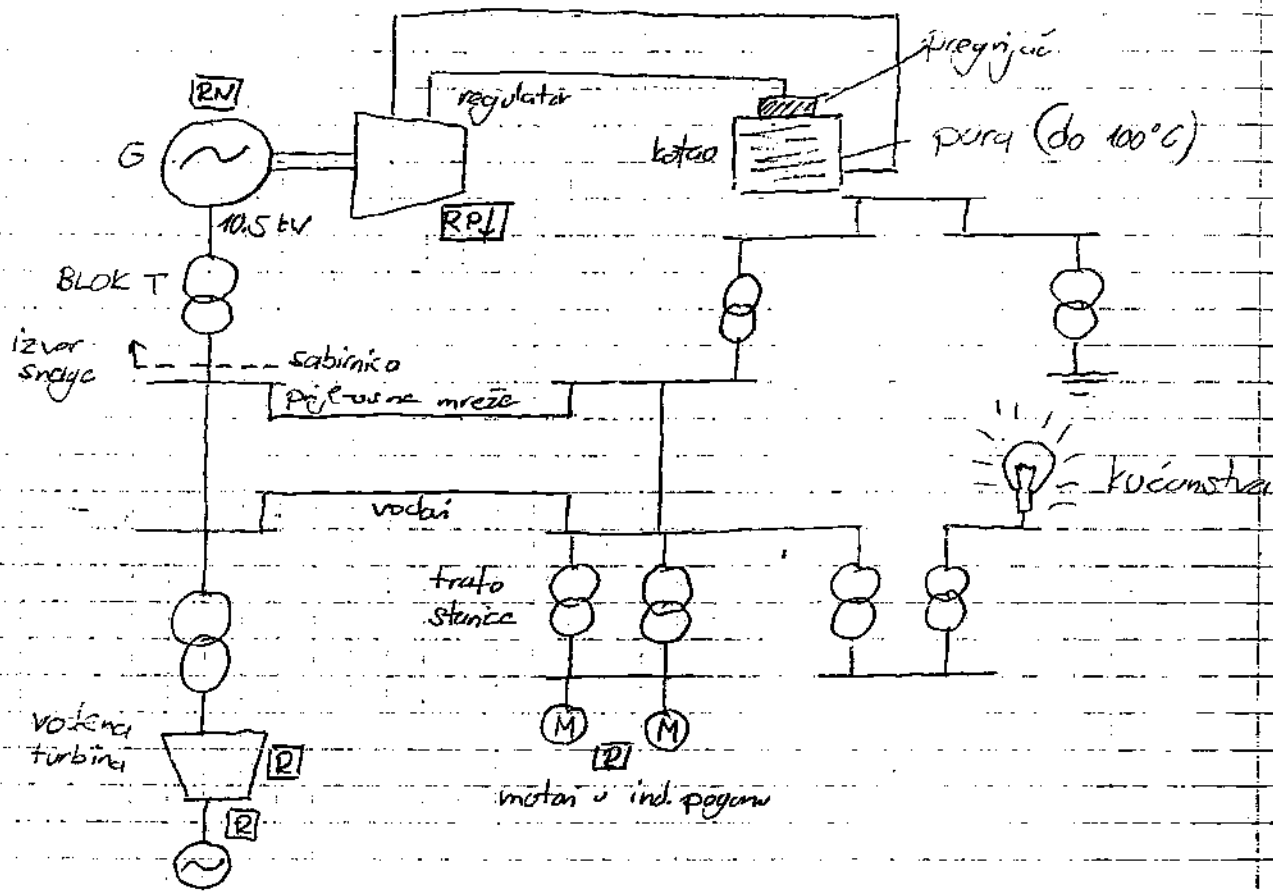 pregrijač
RN
regulator
G
kotao
para (do 100°C)
10.5 kV
RP↓
BLOK T
izvor
snage
sabirnica
prijenosna mreža
kućanstva
vodovi
trafo
stanice
vodena
turbina
R
M
M
R
motori u ind. pogonu
R